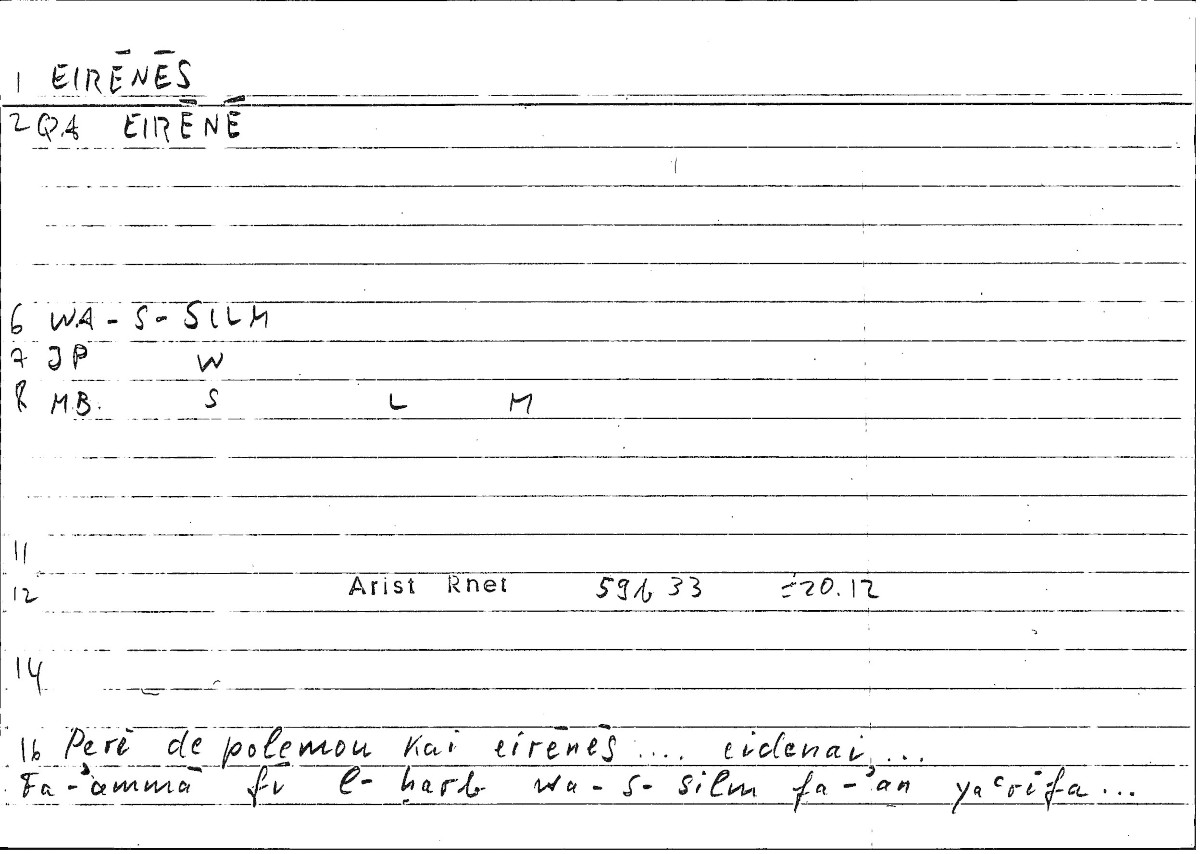 1 EIRĒNĒS
2 QA EIRĒNĒ
6 WA-S-SILM
7 JP W
8 M.B. S L M
11
12 Arist Rhet 59b 33 =20.12
14
16 Peri de polemou kai eirēnēs .... eidenai ...
Fa-'ammā fī l-ḥarb wa-s-silm fa-'an yaʿrifa ...